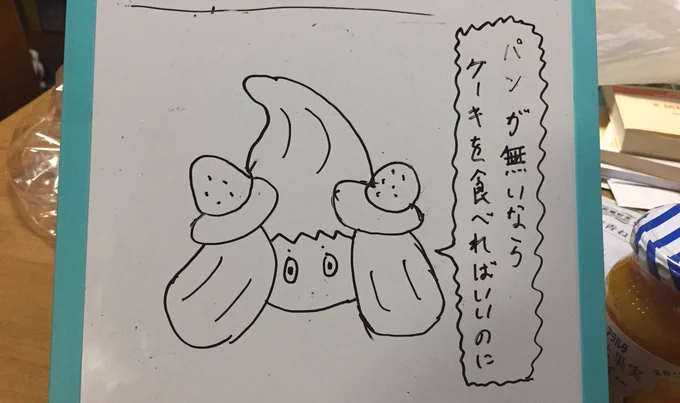 パンが無いなら
ケーキを食べればいいのに